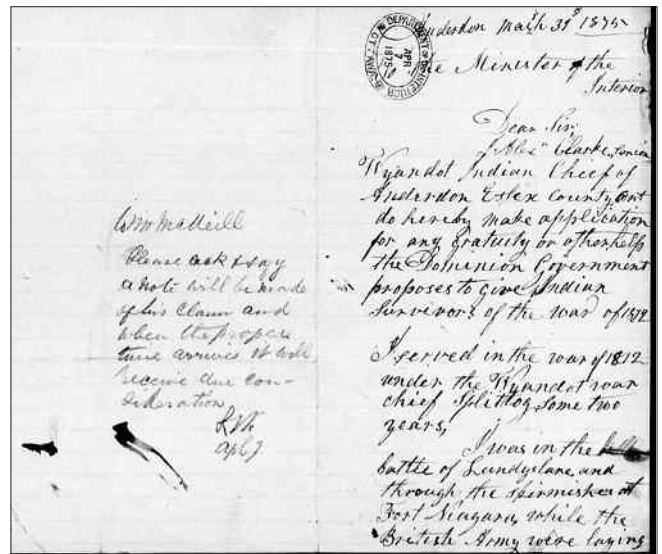 Anderdon March 31st 1875
DEPARTMENT OF THE INTERIOR
APR
7
1875
The Minister of the
Interior
Dear Sir,
I Alex Clarke, Senior
Wyandot Indian Chief of
Anderdon Essex County, Ont
do hereby make application
for any gratuity or other help
the Dominion Government
proposes to give Indian
survivors of the war of 1812
I served in the war of 1812
under the Wyandot war
chief Splitlog, some two
years,
I was in the
battle of Lundys lane, and
through the skirmishes at
Fort Niagara, while the
British Army were laying
Wm McNeill
Please ack & say
a note will be made
of his claim and
when the proper
time arrives it will
receive due con-
sideration
Apl 7